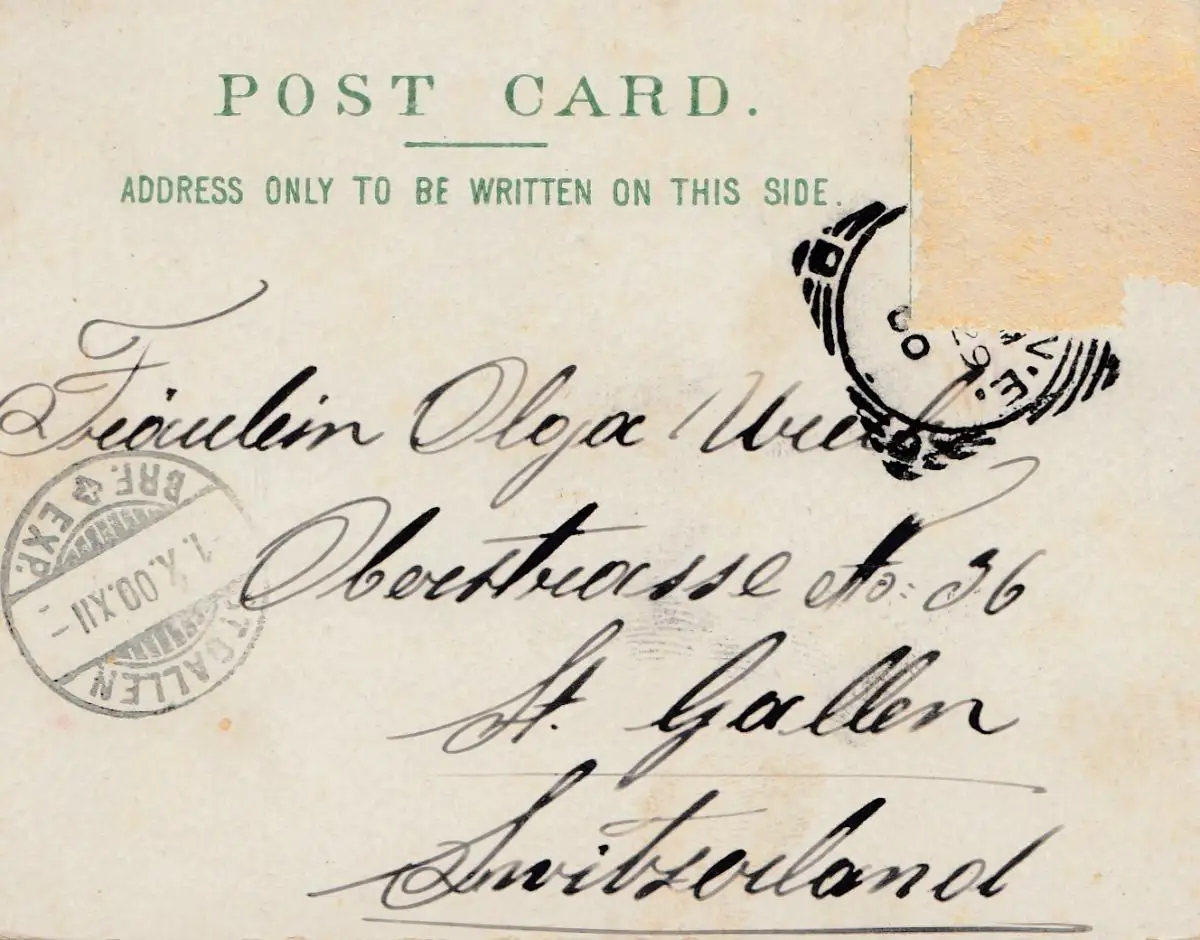 POST CARD.
ADDRESS ONLY TO BE WRITTEN ON THIS SIDE.
00
26
V'E.
Fräulein Olga
BRF. EXP.
1.X.00.XII-
ST GALLEN
Oberstrasse No: 36
St. Gallen
Switzerland